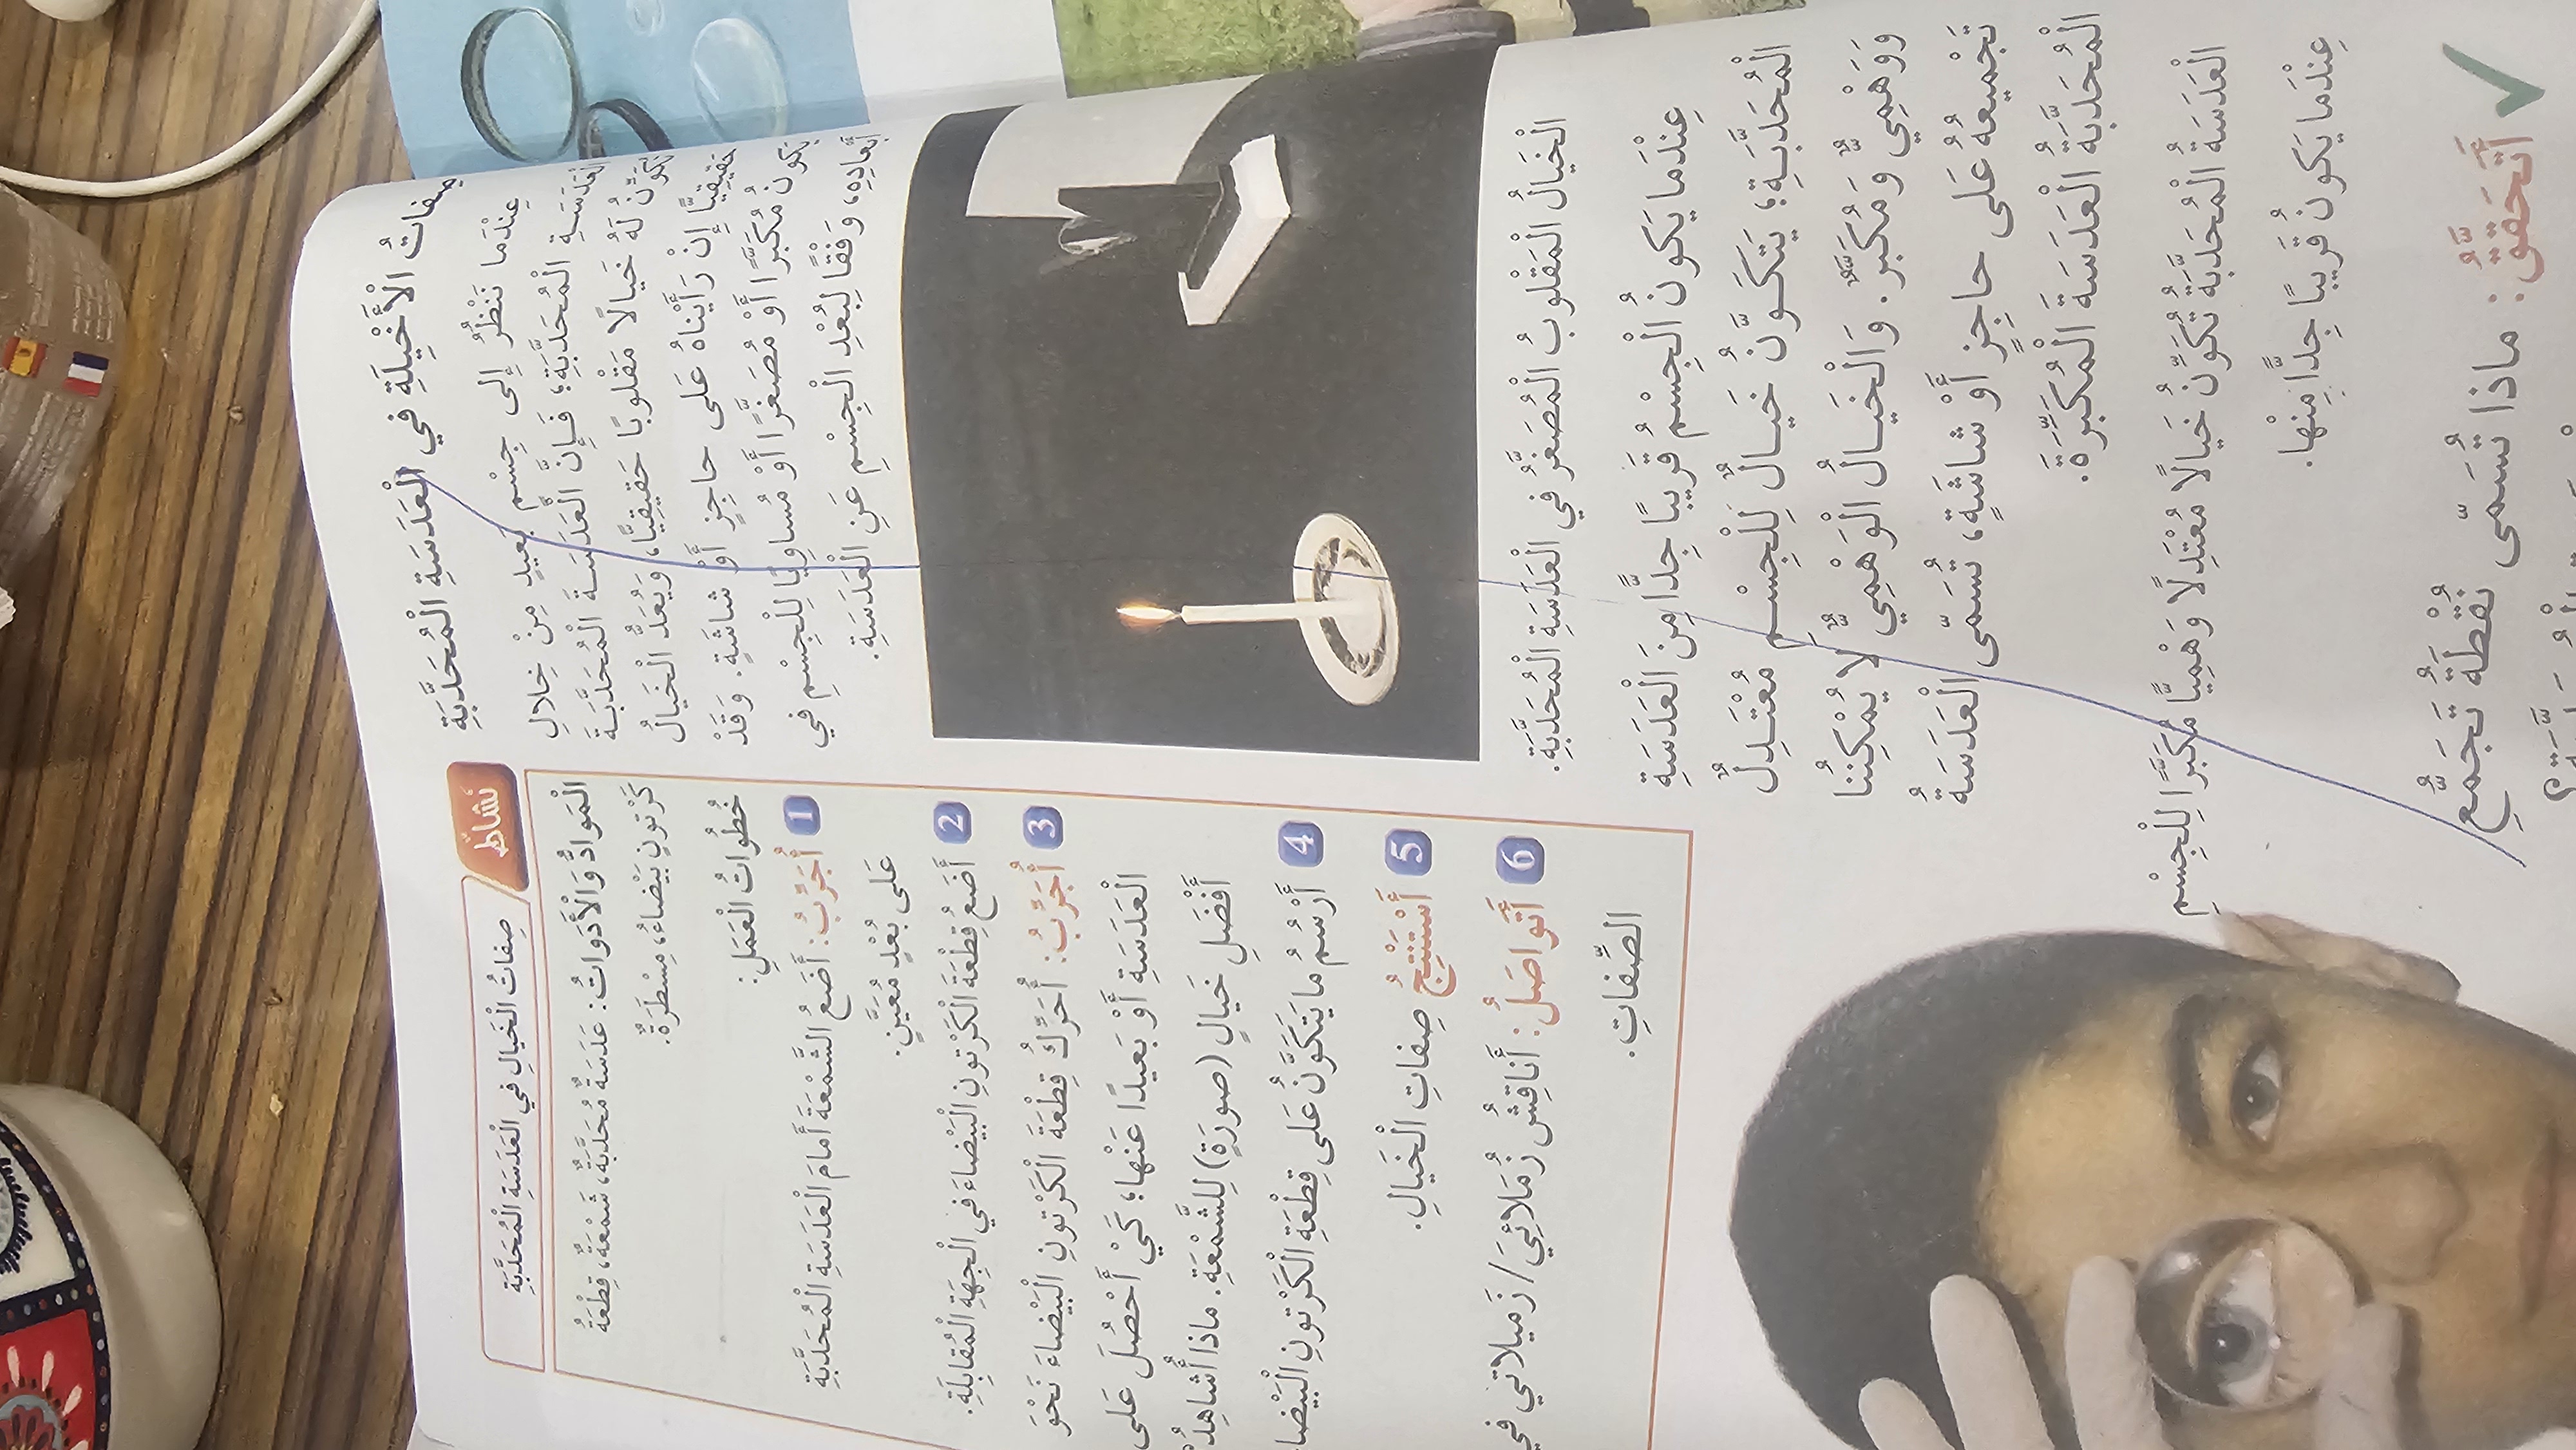 صِفاتُ الْأَخْيِلَةِ في الْعَدَسَةِ الْمُحَدَّبَةِ
عِنْدَما نَنْظُرُ إِلى جِسْمٍ بَعيدٍ مِنْ خِلالِ
الْعَدَسَةِ الْمُحَدَّبَةِ؛ فَإِنَّ الْعَدَسَةَ الْمُحَدَّبَةَ
تُكَوِّنُ لَهُ خَيالًا مَقْلوبًا حَقيقِيًّا، وَيُعَدُّ الْخَيالُ
حَقيقِيًّا إِنْ رَأَيْناهُ عَلى حاجِزٍ أَوْ شاشَةٍ. وَقَدْ
يَكونُ مُكَبَّرًا أَوْ مُصَغَّرًا أَوْ مُساوِيًا لِلْجِسْمِ في
أَبْعادِهِ، وَفْقًا لِبُعْدِ الْجِسْمِ عَنِ الْعَدَسَةِ.
الْخَيالُ الْمَقْلوبُ الْمُصَغَّرُ في الْعَدَسَةِ الْمُحَدَّبَةِ.
عِنْدَما يَكونُ الْجِسْمُ قَريبًا جِدًّا مِنَ الْعَدَسَةِ
الْمُحَدَّبَةِ؛ يَتَكَوَّنُ خَيالٌ لِلْجِسْمِ مُعْتَدِلٌ
وَوَهْمِيٌّ وَمُكَبَّرٌ. وَالْخَيالُ الْوَهْمِيُّ لا يُمْكِنُنا
تَجْميعُهُ عَلى حاجِزٍ أَوْ شاشَةٍ، تُسَمّى الْعَدَسَةُ
الْمُحَدَّبَةُ الْعَدَسَةَ الْمُكَبِّرَةَ.
الْعَدَسَةُ الْمُحَدَّبَةُ تُكَوِّنُ خَيالًا مُعْتَدِلًا وَهْمِيًّا مُكَبَّرًا لِلْجِسْمِ
عِنْدَما يَكونُ قَريبًا جِدًّا مِنْها.
أَتَحَقَّقُ: ماذا تُسَمّى نُقْطَةُ تَجَمُّعِ
نَشاطٌ
صِفاتُ الْخَيالِ في الْعَدَسَةِ الْمُحَدَّبَةِ
الْمَوادُّ وَالْأَدَواتُ: عَدَسَةٌ مُحَدَّبَةٌ، شَمْعَةٌ، قِطْعَةُ
كَرْتونٍ بَيْضاءُ، مِسْطَرَةٌ.
خُطُواتُ الْعَمَلِ:
1 أُجَرِّبُ: أَضَعُ الشَّمْعَةَ أَمامَ الْعَدَسَةِ الْمُحَدَّبَةِ
عَلى بُعْدٍ مُعَيَّنٍ.
2 أَضَعُ قِطْعَةَ الْكَرْتونِ الْبَيْضاءَ في الْجِهَةِ الْمُقابِلَةِ.
3 أُجَرِّبُ: أُحَرِّكُ قِطْعَةَ الْكَرْتونِ الْبَيْضاءَ نَحْوَ
الْعَدَسَةِ أَوْ بَعيدًا عَنْها؛ كَيْ أَحْصُلَ عَلى
أَفْضَلِ خَيالٍ (صورَةٍ) لِلشَّمْعَةِ. ماذا أُشاهِدُ؟
4 أَرْسُمُ ما يَتَكَوَّنُ عَلى قِطْعَةِ الْكَرْتونِ الْبَيْضا
5 أَسْتَنْتِجُ صِفاتِ الْخَيالِ.
6 أَتَواصَلُ: أُناقِشُ زُمَلائِيَ/ زَميلاتي في
الصِّفاتِ.